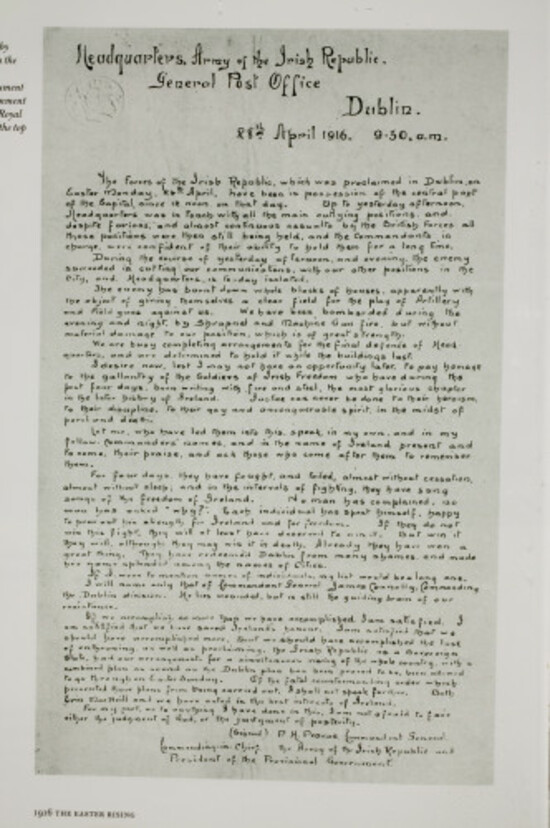 the
Royal
the top
Headquarters, Army of the Irish Republic,
General Post Office
Dublin.
28th April 1916. 9-30. a.m.
The Forces of the Irish Republic, which was proclaimed in Dublin, on
Easter Monday, 24th April, have been in possession of the central part
of the Capital, since 12 noon on that day. Up to yesterday afternoon,
Headquarters was in touch with all the main outlying positions, and,
despite furious, and almost continuous assaults by the British Forces all
those positions were then still being held, and the Commandants in
charge, were confident of their ability to hold them for a long time.
During the course of yesterday afternoon, and evening, the enemy
succeeded in cutting our communications, with our other positions in the
City, and Headquarters, is to-day isolated.
The enemy has burnt down whole blocks of houses, apparently with
the object of giving themselves a clear field for the play of Artillery
and Field guns against us. We have been bombarded during the
evening and night, by Shrapnel and Machine Gun fire, but without
material damage to our position, which is of great strength.
We are busy completing arrangements for the final defence of Head-
quarters, and are determined to hold it while the buildings last.
I desire now, lest I may not have an opportunity later, to pay homage
to the gallantry of the Soldiers of Irish Freedom who have during the
past four days, been writing with fire and steel, the most glorious chapter
in the later history of Ireland. Justice can never be done to their heroism,
to their discipline, to their gay and unconquerable spirit, in the midst of
peril and death.
Let me, who have led them into this, speak, in my own, and in my
fellow-Commanders' names, and in the name of Ireland present and
to come, their praise, and ask those who come after them to remember
them.
For four days, they have fought, and toiled, almost without cessation,
almost without sleep, and in the intervals of fighting, they have sung
songs of the freedom of Ireland. No man has complained, no
man has asked "why?". Each individual has spent himself, happy
to pour out his strength for Ireland and for freedom. If they do not
win this fight, they will at least have deserved to win it. But win it
they will, although they may win it in death. Already they have won a
great thing. They have redeemed Dublin from many shames, and made
her name splendid among the names of Cities.
If I were to mention names of individuals, my list would be a long one.
I will name only that of Commandant General James Connolly, Commanding
the Dublin division. He lies wounded, but is still the guiding brain of our
resistance.
If we accomplish no more than we have accomplished, I am satisfied. I
am satisfied that we have saved Ireland's honour. I am satisfied that we
should have accomplished more, that we should have accomplished the task
of enthroning, as well as proclaiming, the Irish Republic as a Sovereign
State, had our arrangements for a simultaneous rising of the whole country, with a
combined plan as sound as the Dublin plan has been proved to be, been allowed
to go through on Easter Sunday. Of the fatal countermanding order which
prevented those plans from being carried out, I shall not speak further. Both
Eoin MacNeill and we have acted in the best interests of Ireland.
For my part, as to anything I have done in this, I am not afraid to face
either the judgment of God, or the judgment of posterity.
(Signed) P. H. Pearse Commandant General.
Commanding-in-Chief, the Army of the Irish Republic and
President of the Provisional Government.
1916 THE EASTER RISING